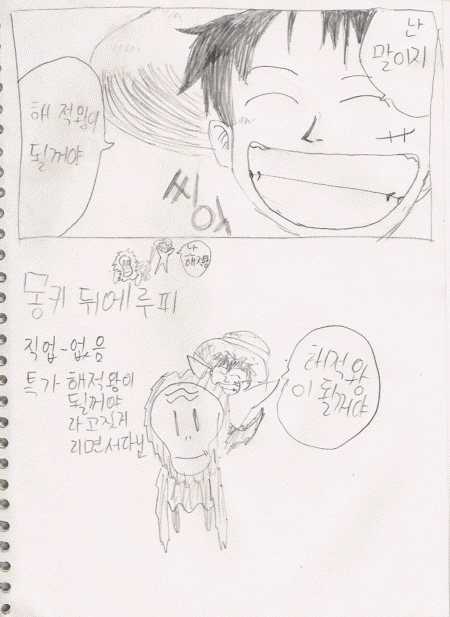 난
말이지
해적왕이
될꺼야
씨익
난
해적왕
몽키 뒤에 루피
직업-없음
특기 해적왕이
될꺼야
라고 전거
리면서 다님
해적왕
이 될꺼야